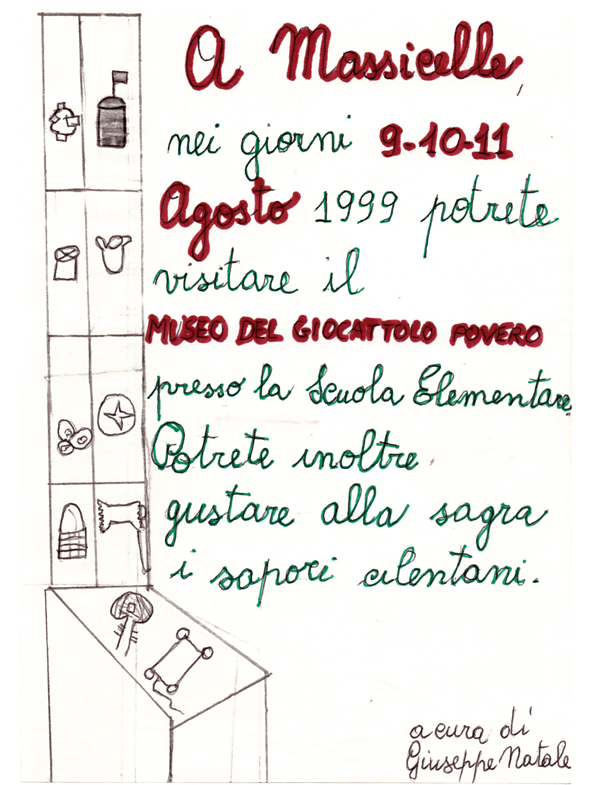 A Massicelle,
nei giorni 9-10-11
Agosto 1999 potrete
visitare il
MUSEO DEL GIOCATTOLO POVERO
presso la Scuola Elementare.
Potrete inoltre
gustare alla sagra
i sapori cilentani.
a cura di
Giuseppe Natale